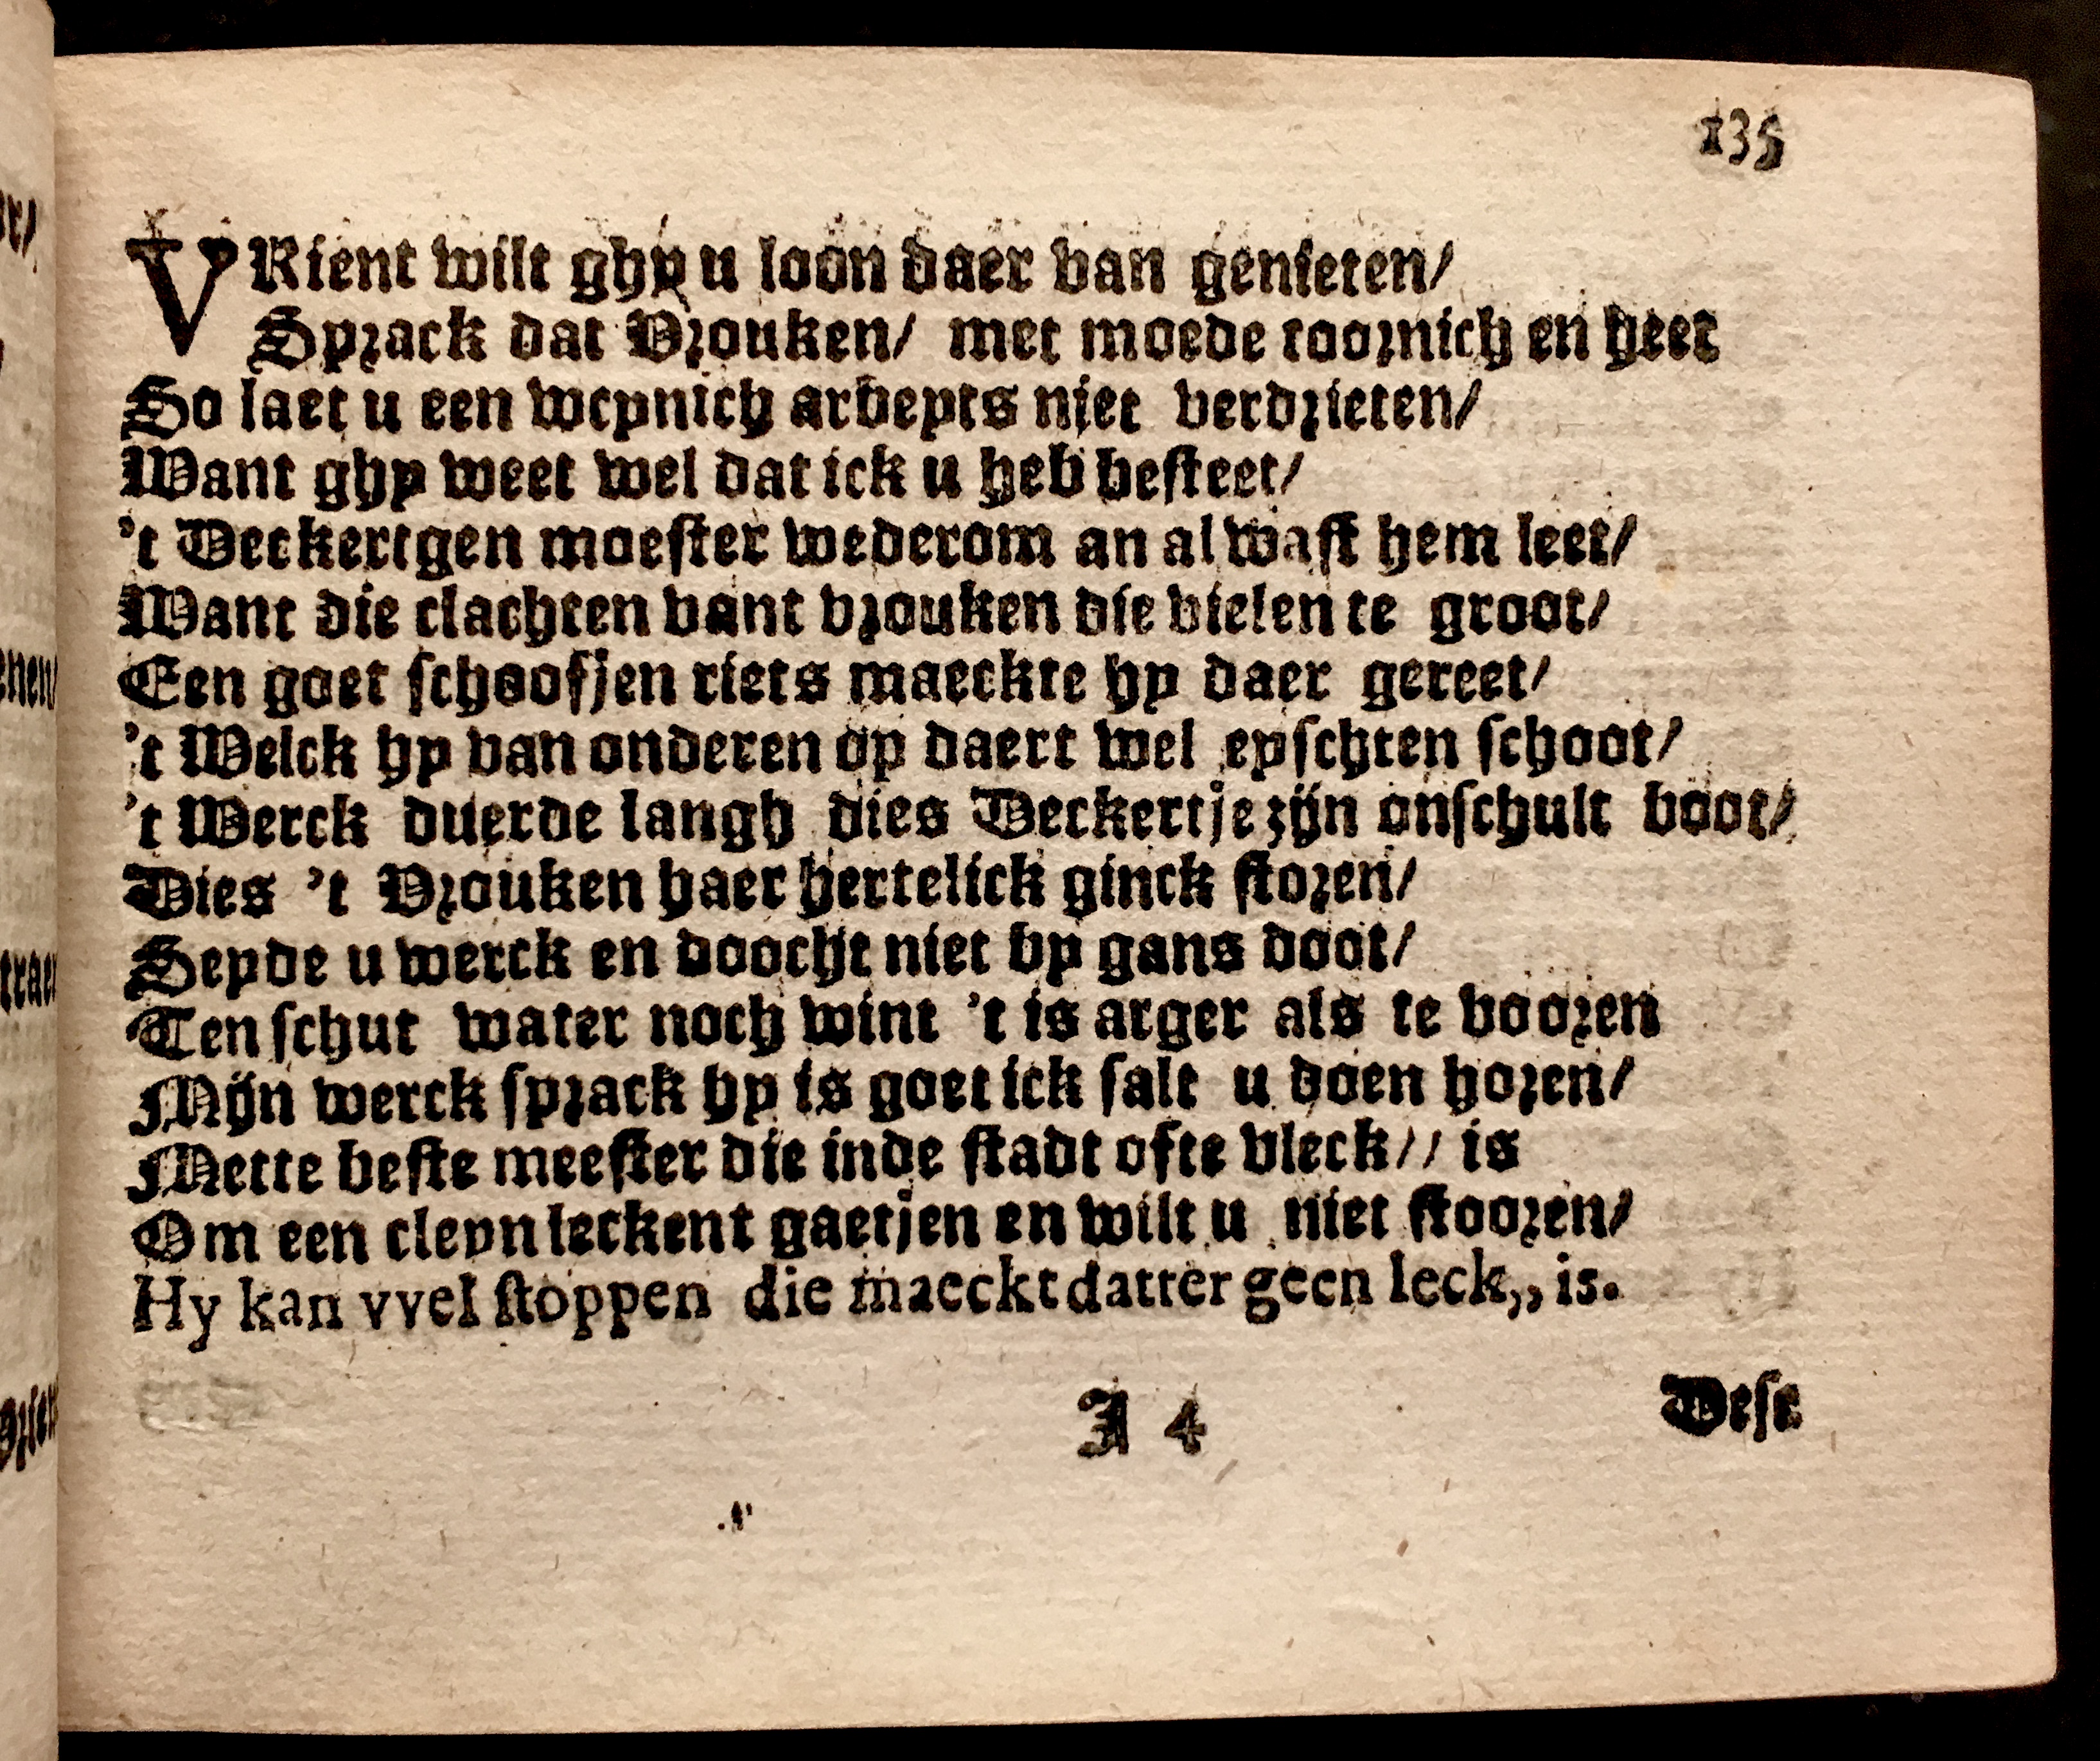 135
VRient wilt ghy u loon daer van genieten/
Sprack dat Vrouken/ met moede toornich en heet
So laet u een weynich arbeyts niet verdrieten/
Want ghy weet wel dat ick u heb besteet/
't Deckertgen moester wederom an al wast hem leet/
Want die clachten vant vrouken die vielen te groot/
Een goet schoofjen riets maeckte hy daer gereet/
't Welck hy van onderen op daert wel eyschten schoot/
't Werck duerde langh dies Deckertje zijn onschult boot/
Dies 't Vrouken haer hertelick ginck storen/
Seyde u werck en doocht niet by gans doot/
Ten schut water noch wint 't is arger als te vooren
Mijn werck sprack hy is goet ick salt u doen horen/
Mette beste meester die inde stadt ofte vleck// is
Om een cleyn leckent gaetjen en wilt u niet stooren/
Hy kan vvel stoppen die maeckt datter geen leck,, is.
I 4
Dese